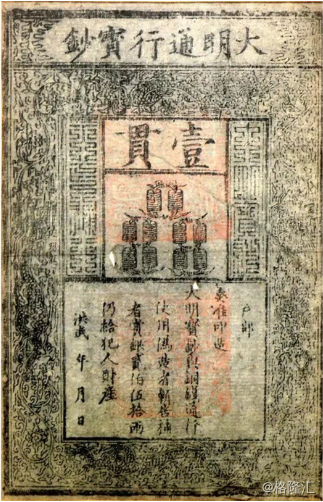 大明通行寶鈔
壹貫
戶部
奏准印造
大明寶鈔與銅錢通行
使用偽造者斬告捕
者賞銀貳伯伍拾兩
仍給犯人財產
洪武 年 月 日
@格隆汇